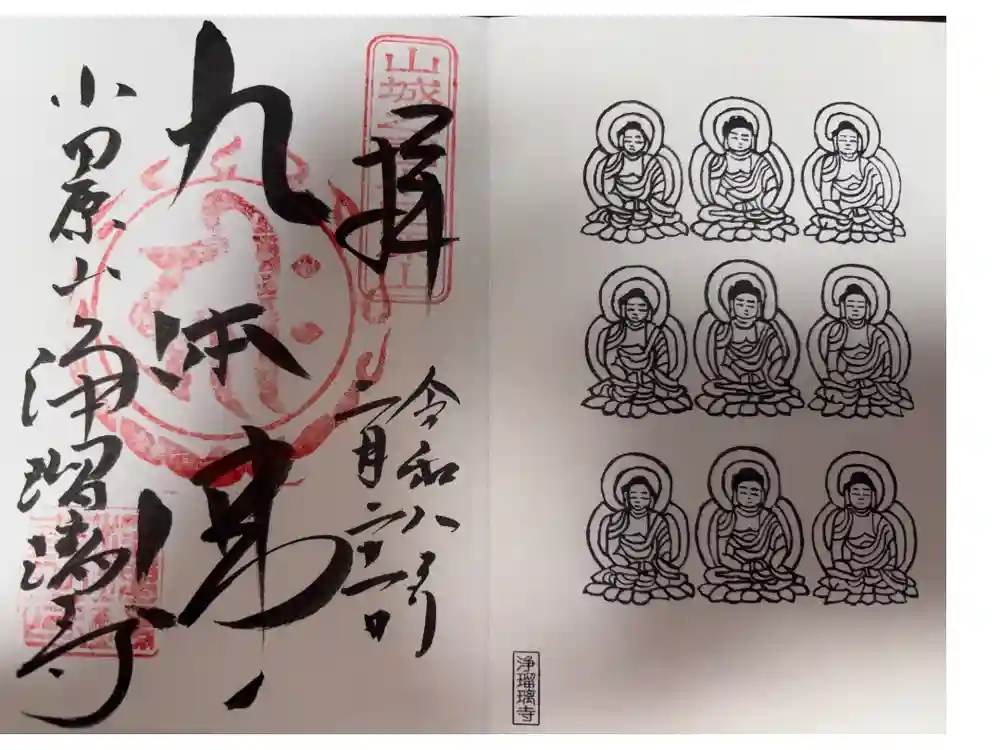 拝
令和八年
二月二十二日
九体佛
小田原山 浄瑠璃寺
浄瑠璃寺